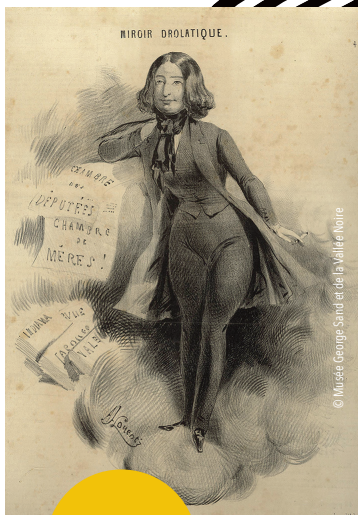 MIROIR DROLATIQUE.
CHAMBRE
DES
DÉPUTÉES
CHAMBRE
DE
MÈRES!
INDIANA
JACQUES
A Lorentz
© Musée George Sand et de la Vallée Noire